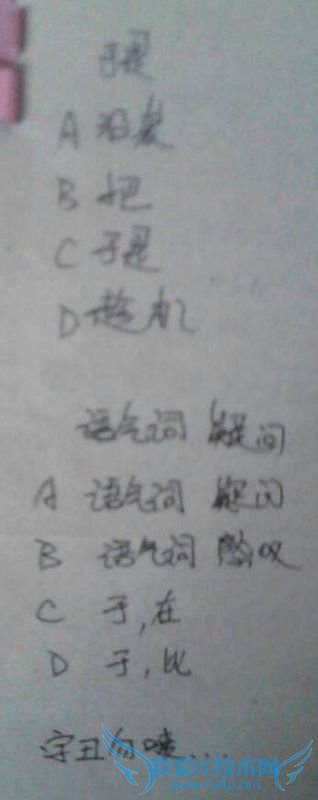 于是
A 沿袭
B 把
C 于是
D 趁机
语气词 疑问
A 语气词 疑问
B 语气词 感叹
C 于,在
D 于,比
字丑勿喷...